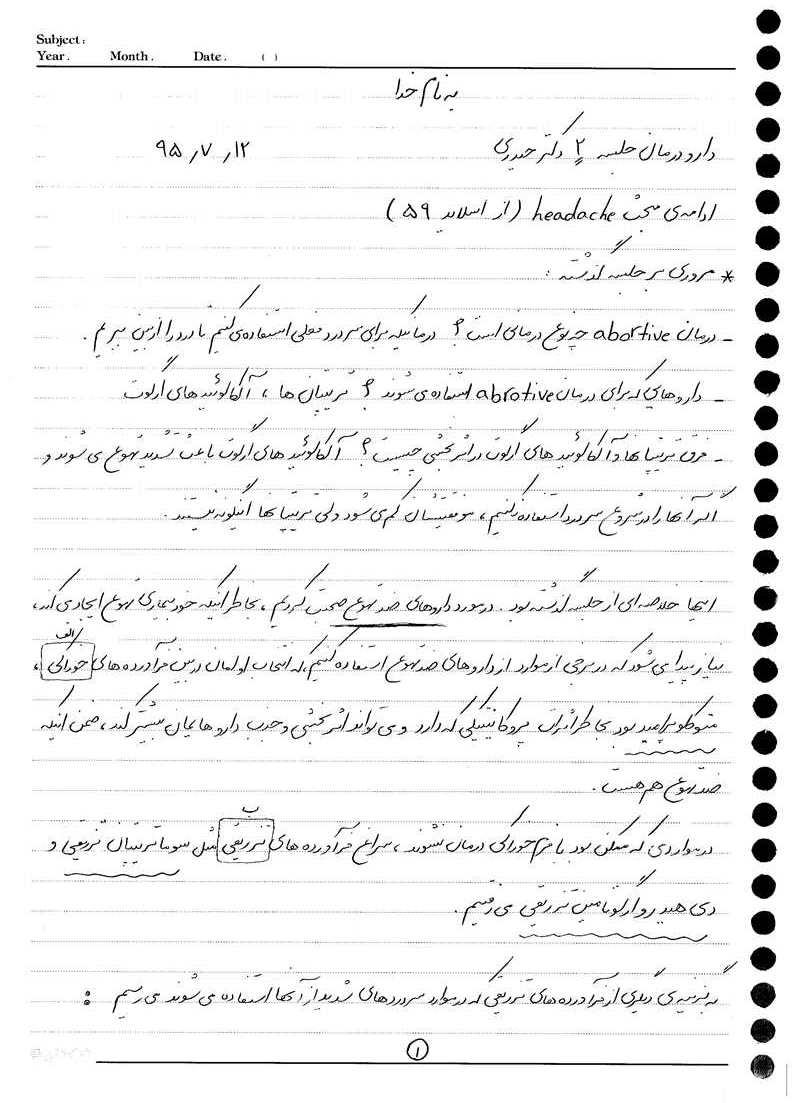 Subject:
Year. Month. Date. ( )
به نام خدا
دارو درمان جلسه ۲ دکتر حیدری ۹۵٫۷٫۱۲
ادامه‌ی مبحث headache (از اسلاید ۵۹)
* مروری بر جلسه گذشته :
- درمان abortive چه نوع درمانی است؟ درمانیکه برای سردرد فعلی استفاده می‌کنیم تا درد را از بین ببریم.
- داروهایی که برای درمان abrotive استفاده می‌شوند؟ تریپتان ها، آلکالوئید های ارگوت
- فرق تریپتان‌ها و آلکالوئید های ارگوت در اثربخشی چیست؟ آلکالوئید های ارگوت باعث تشدید تهوع می شوند و
اگر آنها را در شروع سردرد استفاده نکنیم، موفقیتشان کم می شود ولی تریپتان‌ها اینگونه نیستند.
اینها خلاصه ای از جلسه گذشته بود. در مورد داروهای ضد تهوع صحبت کردیم، بخاطر اینکه خود بیماری تهوع ایجاد می کند،
الف
نیاز پیدا می شود که در برخی از موارد از داروهای ضد تهوع استفاده کنیم، که انتخاب اولمان در بین فرآورده های خوراکی،
متوکلوپرامید بود بخاطر اثرات پروکاینتیکی که دارد و می تواند اثربخشی و جذب داروهایمان بیشتر کند، ضمن اینکه
ضد تهوع هم هست.
ب
در مواردی که ممکن بود با فرم خوراکی درمان نشوند، سراغ فرآورده های تزریقی مثل سوماتریپتان تزریقی و
دی هیدروارگوتامین تزریقی می رفتیم.
به گزینه ی دیگری از فرآورده های تزریقی که در موارد سردردهای شدید از آنها استفاده می شوند می رسیم :
۱